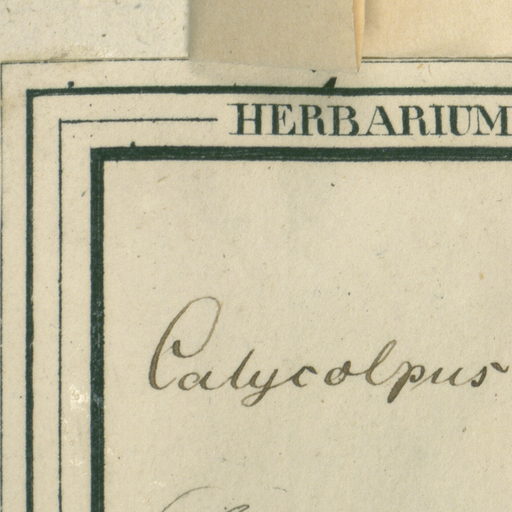 HERBARIUM
Calycolpus